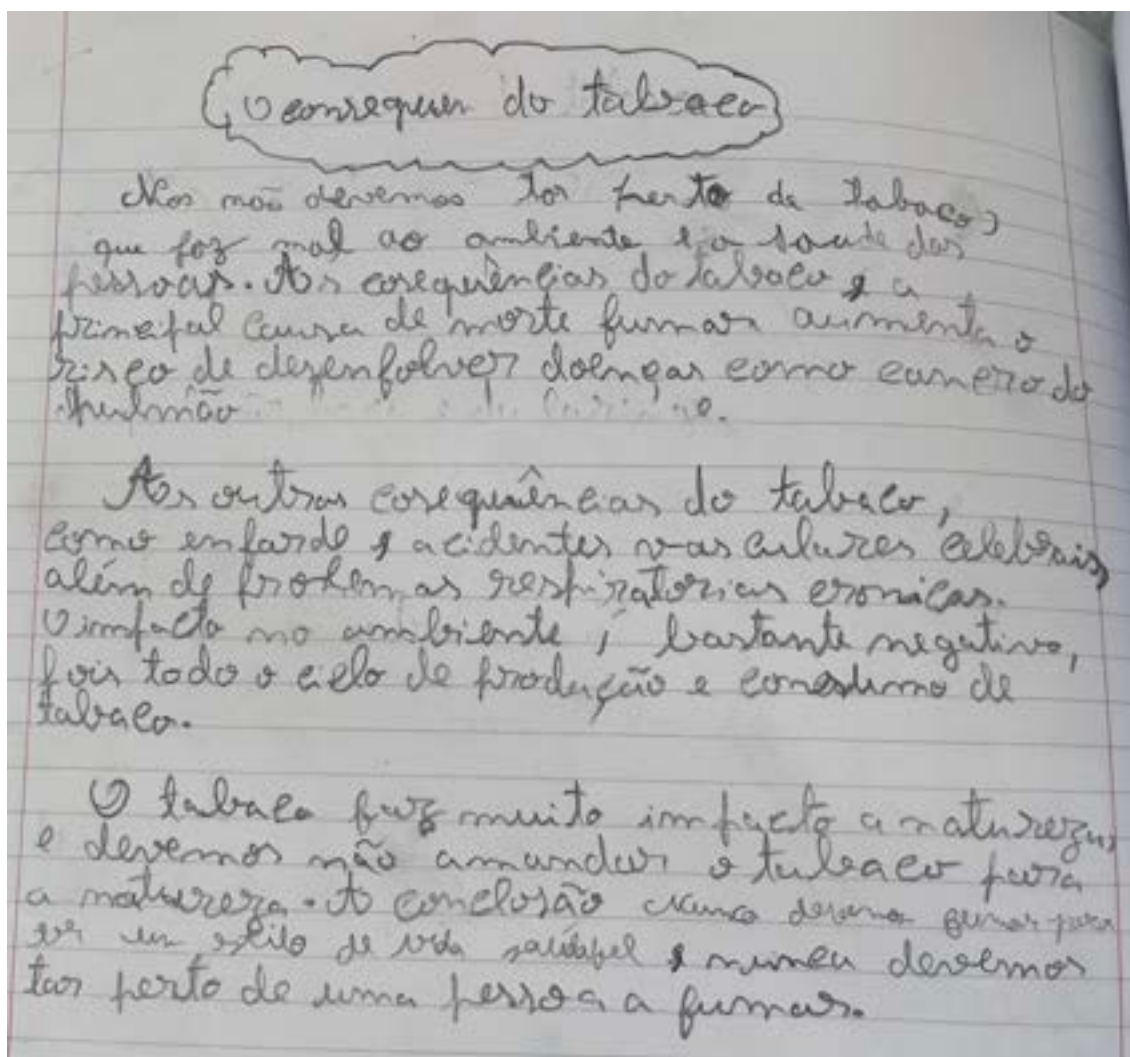 O consequen do tabaco
Nos não devemos tar perto de tabaco,
que faz mal ao ambiente e a saude das
pessoas. As cosequências do tabaco, a
principal causa de morte fumar aumenta o
risco de desenfolver doenças como cancro do
pulmão
As outras cosequências do tabaco,
como enfarde, acidentes vasculures celebrais,
além de problemas respiratorias cronicas.
O impacto no ambiente, bastante negativo,
pois todo o ciclo de produção e consumo de
tabaco.
O tabaco faz muito impacto a natureza,
e devemos não amandar o tabaco para
a natureza. A conclosão nunca devemos fumar para
ter um estilo de vida saudafel, nunca devemos
tar perto de uma pessoa a fumar.